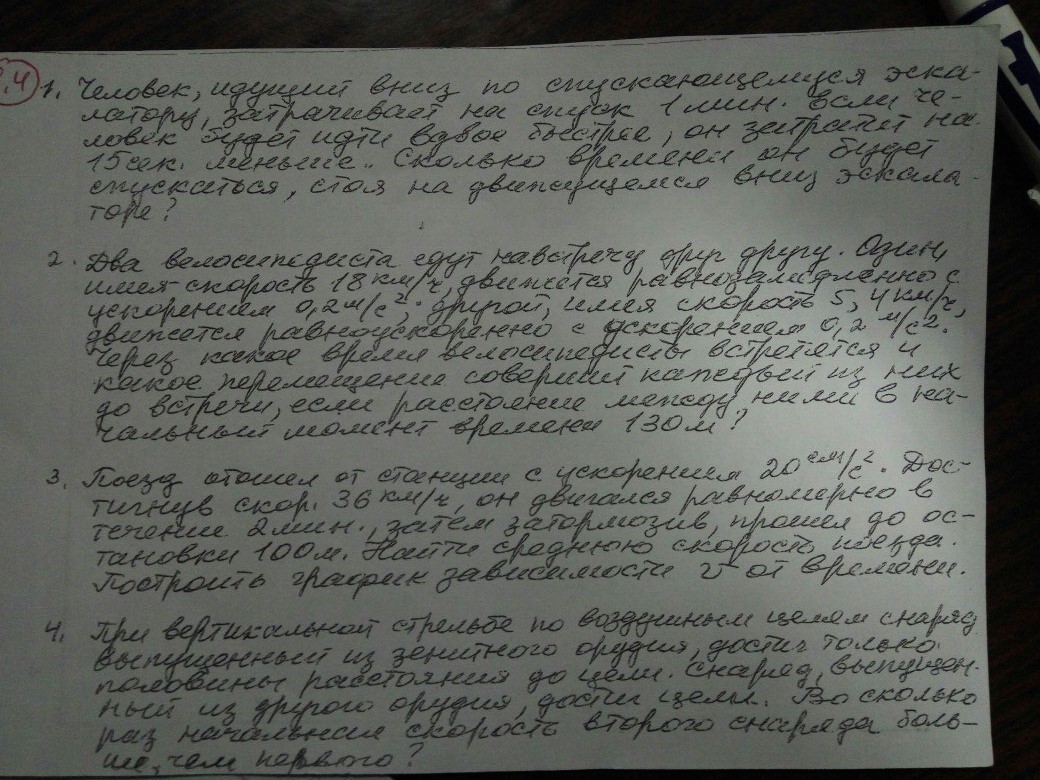 .4 1. Человек, идущий вниз по спускающемуся эска-
латору, затрачивает на спуск 1 мин. Если че-
ловек будет идти вдвое быстрее, он затратит на
15 сек. меньше. Сколько времени он будет
спускаться, стоя на движущемся вниз эскала-
торе?
2. Два велосипедиста едут навстречу друг другу. Один,
имея скорость 18 км/ч, движется равнозамедленно с
ускорением 0,2 м/с², другой, имея скорость 5,4 км/ч,
движется равноускоренно с ускорением 0,2 м/с².
Через какое время велосипедисты встретятся и
какое перемещение совершит каждый из них
до встречи, если расстояние между ними в на-
чальный момент времени 130 м?
3. Поезд отошел от станции с ускорением 20 см/с². Дос-
тигнув скор. 36 км/ч, он двигался равномерно в
течение 2 мин., затем затормозив, прошел до ос-
тановки 100 м. Найти среднюю скорость поезда.
Построить график зависимости v от времени.
4. При вертикальной стрельбе по воздушным целям снаряд
выпущенный из зенитного орудия, достиг только
половины расстояния до цели. Снаряд, выпущен-
ный из другого орудия, достиг цели. Во сколько
раз начальная скорость второго снаряда боль-
ше, чем первого?